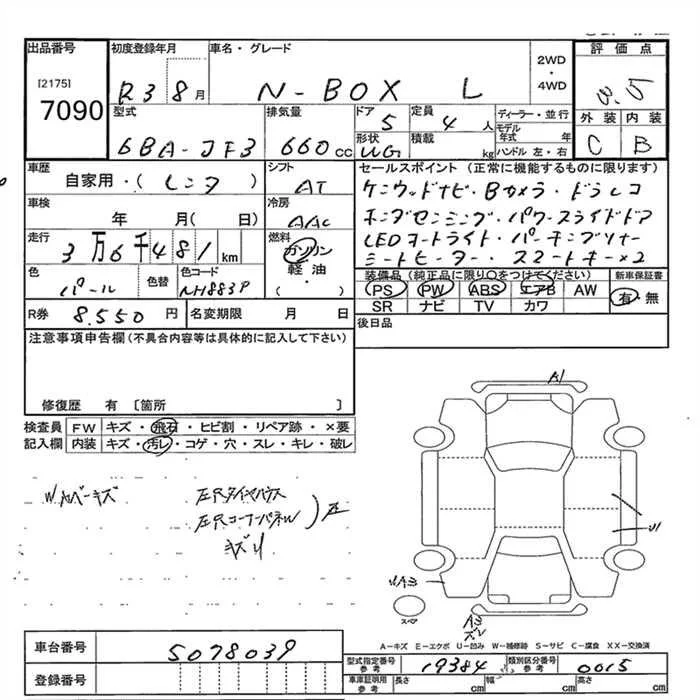 出品番号
[2175]
7090
初度登録年月
R3 8月
車名・グレード
N-BOX L
2WD
・
4WD
評価点
3.5
外装 内装
C B
型式
6BA-JF3
排気量
660 CC
ドア
5
定員
4 人
形状
積載
kg
ディーラー・並行
モデル年式 年
ハンドル 左・右
車歴
自家用・(レンタ)
シフト
AT
車検
年 月( 日)
冷房
AAC
走行
3万6千481km
燃料
ガソリン
軽・油
( )
色
パール
色替
色コード
NH883P
R券 8.550 円
名変期限 月 日
セールスポイント (正常に機能するものに限ります)
ケンウッドナビ・Bカメラ・ドラレコ
ホンダセンシング・パワースライドドア
LEDオートライト・パーキングソナー
シートヒーター・スマートキー×2
装備品 (純正品に限り○をつけてください)
新車保証書
PS PW ABS エアB AW
SR ナビ TV カワ
有・無
後日品
注意事項申告欄(不具合内容等は具体的に記入して下さい)
修復歴 有 〔箇所 〕
検査員 FW キズ・飛石・ヒビ割・リペア跡・×要
記入欄 内装 キズ・汚レ・コゲ・穴・スレ・キレ・破レ
左Rタイヤハウス
左Rコーナーパネル
キズU
A1
A3
スペア
A-キズ E-エクボ U-凹み W-補修跡 S-サビ C-腐食 XX-交換済
車台番号 5078039
登録番号
型式指定番号 参考 19384
類別区分番号 参考 0015
車庫証明用 参考 長さ cm 幅 cm 高さ cm